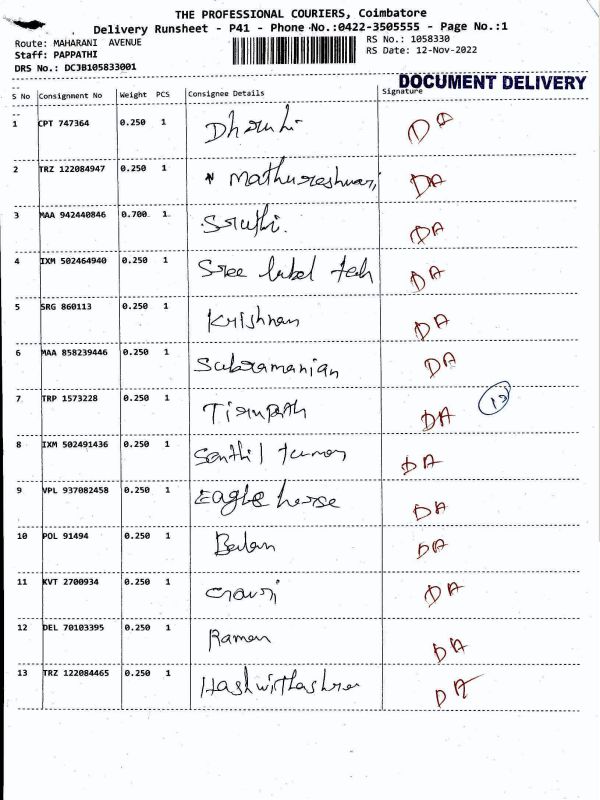 THE PROFESSIONAL COURIERS, Coimbatore
Delivery Runsheet - P41 - Phone No.:0422-3505555 - Page No.:1
Route: MAHARANI AVENUE
RS No.: 1058330
Staff: PAPPATHI
RS Date: 12-Nov-2022
DRS No.: DCJB105833001
DOCUMENT DELIVERY
S No Consignment No Weight PCS Consignee Details Signature
1 CPT 747364 0.250 1 DA
2 TRZ 122084947 0.250 1 Mathureshwari DA
3 MAA 942440846 0.700 1 Sruthi. DA
4 IXM 502464940 0.250 1 Sree label tech DA
5 SRG 860113 0.250 1 Krishnan DA
6 MAA 858239446 0.250 1 Subramanian DA
7 TRP 1573228 0.250 1 Tirupath DA 13
8 IXM 502491436 0.250 1 Senthil DA
9 VPL 937082458 0.250 1 Eagle DA
10 POL 91494 0.250 1 Balan DA
11 KVT 2700934 0.250 1 Gowri DA
12 DEL 70103395 0.250 1 Raman DA
13 TRZ 122084465 0.250 1 DA